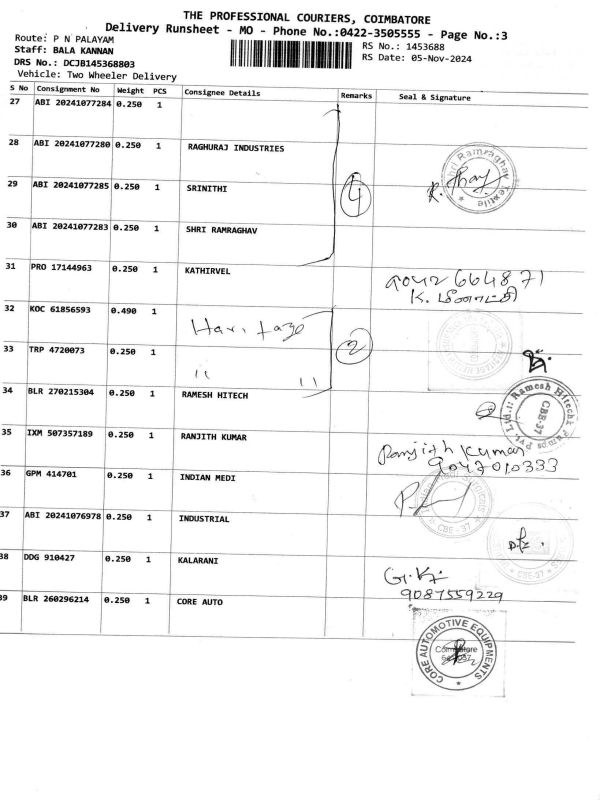 THE PROFESSIONAL COURIERS, COIMBATORE
Delivery Runsheet - MO - Phone No.:0422-3505555 - Page No.:3
Route: P N PALAYAM
Staff: BALA KANNAN
DRS No.: DCJB145368803
Vehicle: Two Wheeler Delivery
RS No.: 1453688
RS Date: 05-Nov-2024
S No Consignment No Weight PCS Consignee Details Remarks Seal & Signature
27 ABI 20241077284 0.250 1
28 ABI 20241077280 0.250 1 RAGHURAJ INDUSTRIES
Shri Ramraghav Textile
29 ABI 20241077285 0.250 1 SRINITHI 4
30 ABI 20241077283 0.250 1 SHRI RAMRAGHAV
31 PRO 17144963 0.250 1 KATHIRVEL
9042664871
K. மீனாட்சி
32 KOC 61856593 0.490 1 Haritage
33 TRP 4720073 0.250 1 " " 2
34 BLR 270215304 0.250 1 RAMESH HITECH
Ramesh Hitech Pumps Pvt. Ltd.
CBE-37
35 IXM 507357189 0.250 1 RANJITH KUMAR
Ranjith Kumar
9047010333
36 GPM 414701 0.250 1 INDIAN MEDI
CBE-37
37 ABI 20241076978 0.250 1 INDUSTRIAL
CBE-37
38 DDG 910427 0.250 1 KALARANI
9087559229
39 BLR 260296214 0.250 1 CORE AUTO
CORE AUTOMOTIVE EQUIPMENTS
Coimbatore